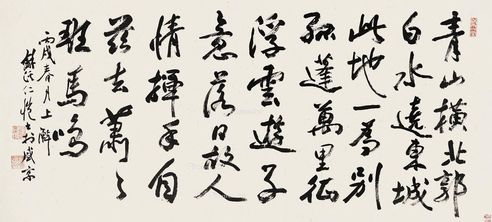 青山橫北郭
白水遶東城
此地一為別
孤蓬萬里征
浮雲遊子
意落日故人
情揮手自
茲去蕭々
班馬鳴
丙戌春月上澣
仁愷